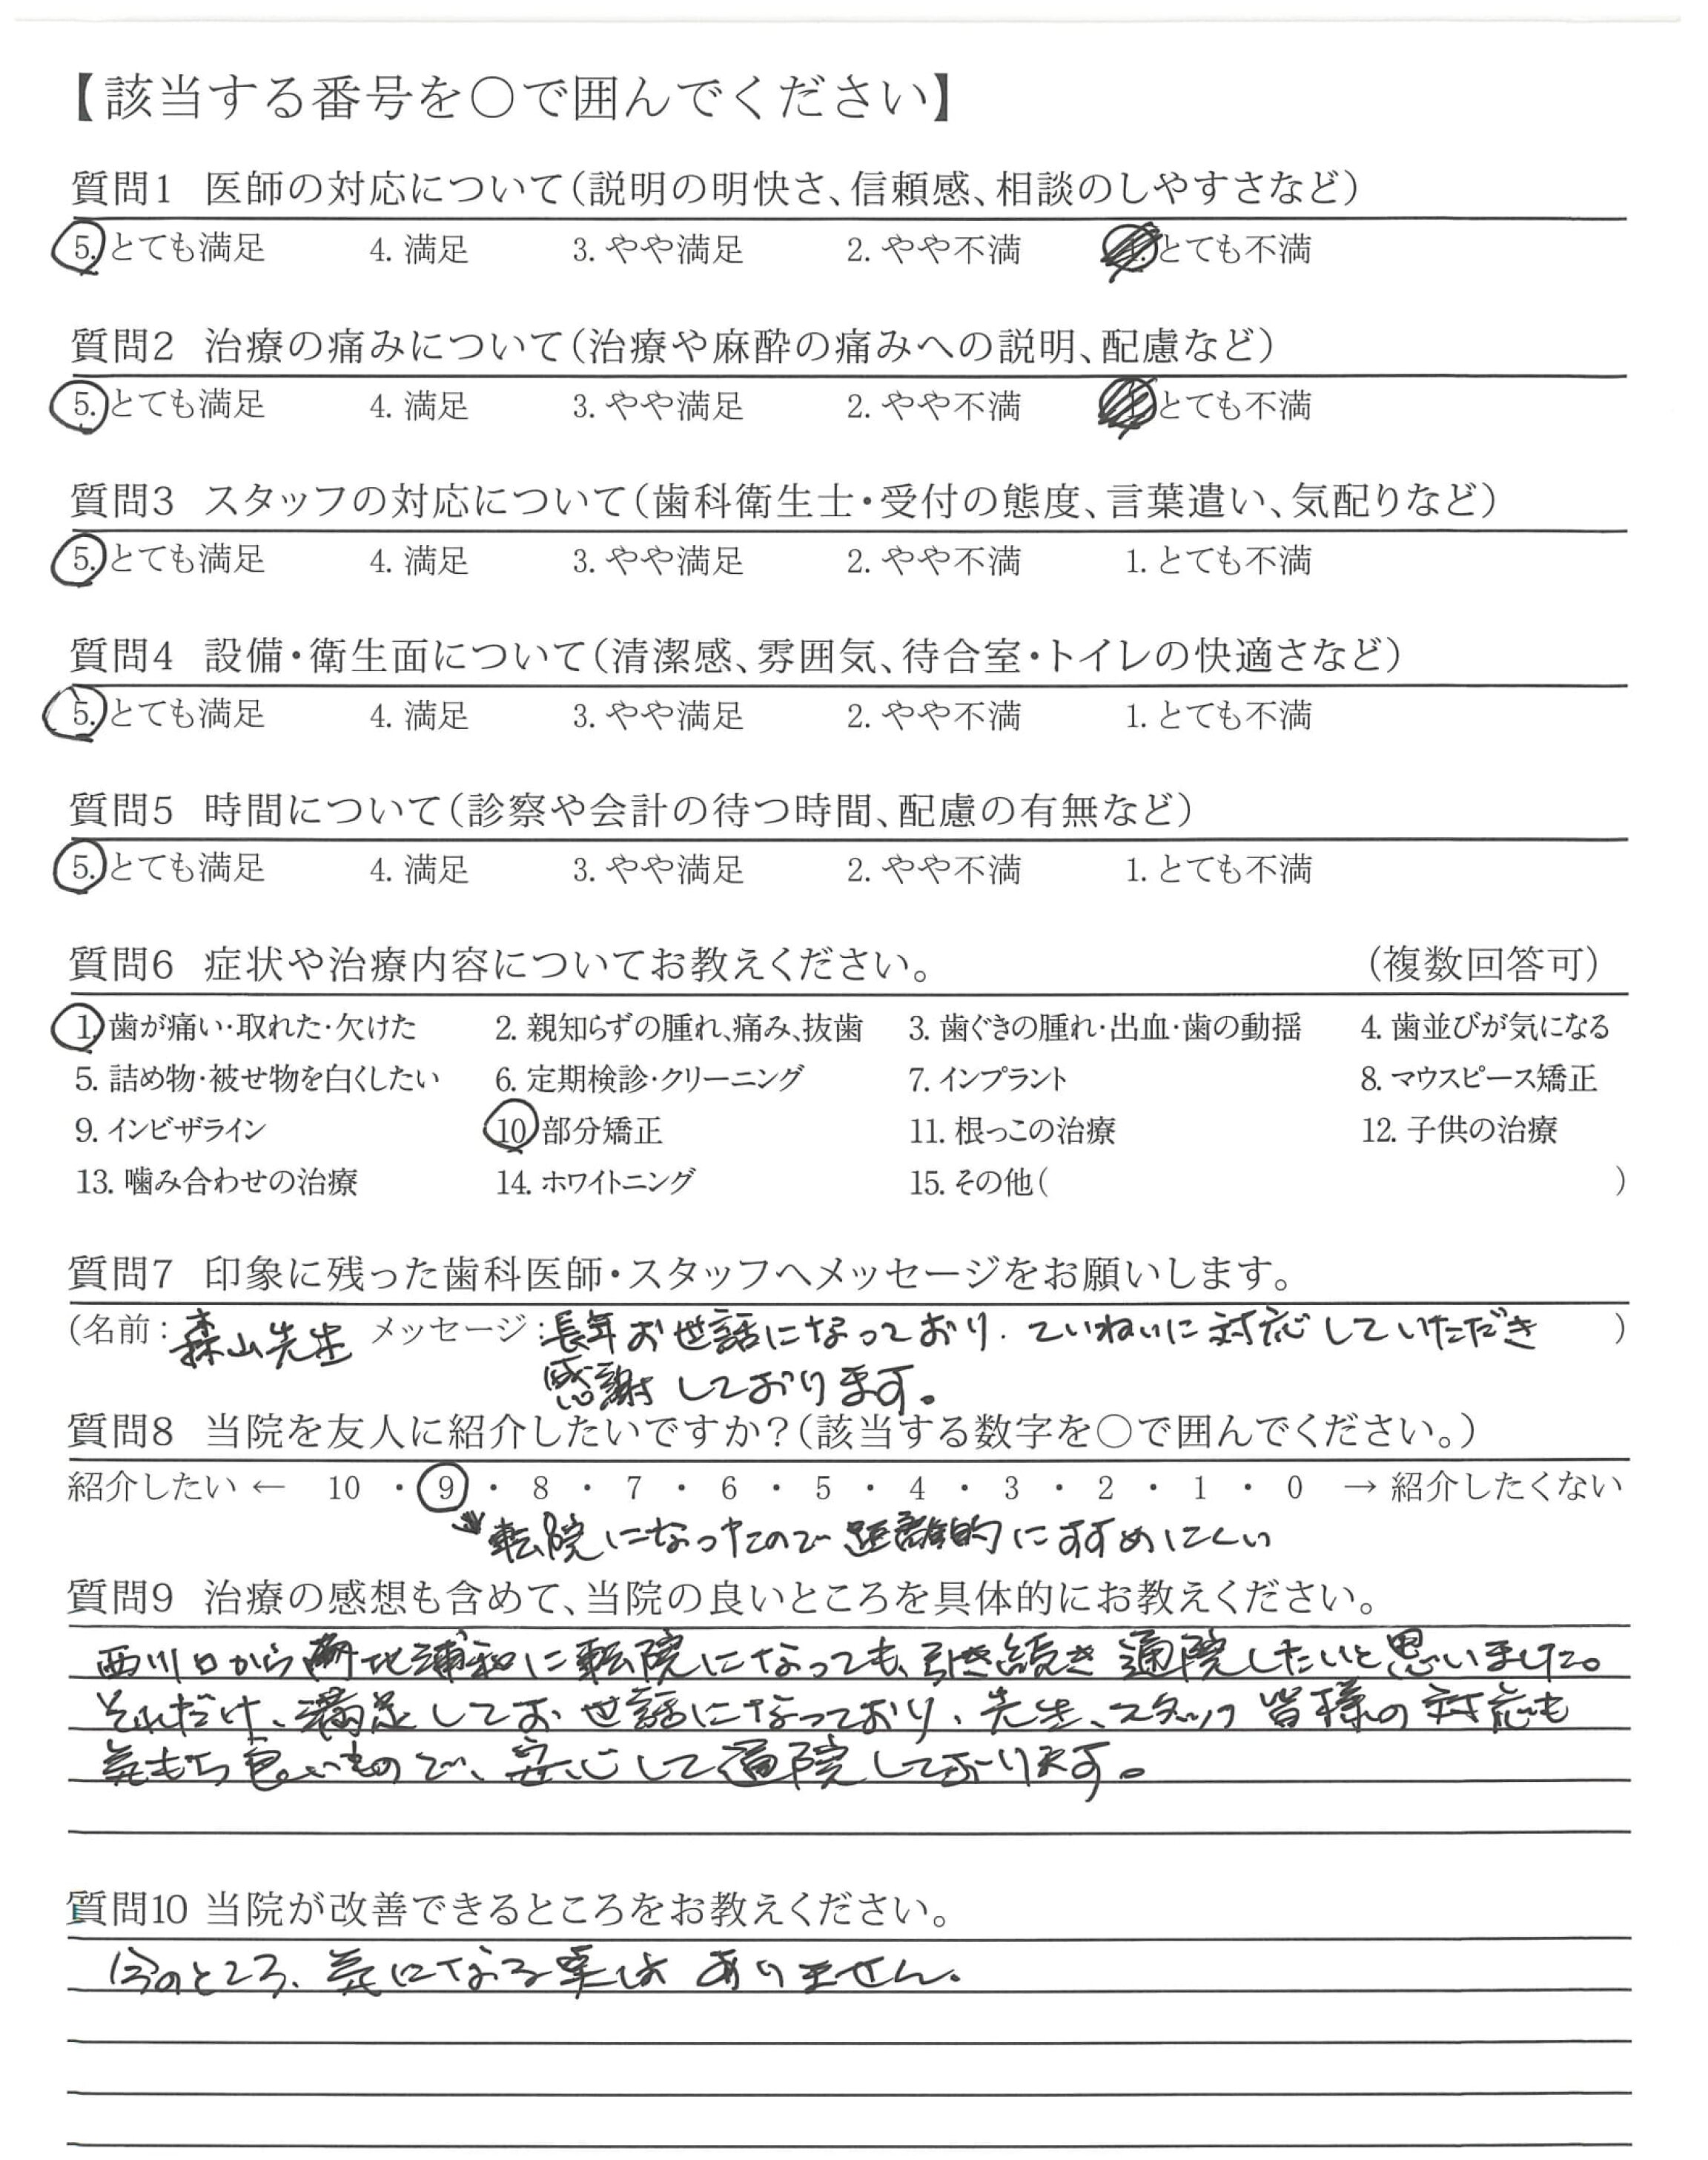 【該当する番号を○で囲んでください】
質問1 医師の対応について(説明の明快さ、信頼感、相談のしやすさなど)
5. とても満足 4. 満足 3. やや満足 2. やや不満 とても不満
質問2 治療の痛みについて(治療や麻酔の痛みへの説明、配慮など)
5. とても満足 4. 満足 3. やや満足 2. やや不満 1. とても不満
質問3 スタッフの対応について(歯科衛生士・受付の態度、言葉遣い、気配りなど)
5. とても満足 4. 満足 3. やや満足 2. やや不満 1. とても不満
質問4 設備・衛生面について(清潔感、雰囲気、待合室・トイレの快適さなど)
5. とても満足 4. 満足 3. やや満足 2. やや不満 1. とても不満
質問5 時間について(診察や会計の待つ時間、配慮の有無など)
5. とても満足 4. 満足 3. やや満足 2. やや不満 1. とても不満
質問6 症状や治療内容についてお教えください。 (複数回答可)
1. 歯が痛い・取れた・欠けた 2. 親知らずの腫れ、痛み、抜歯 3. 歯ぐきの腫れ・出血・歯の動揺 4. 歯並びが気になる
5. 詰め物・被せ物を白くしたい 6. 定期検診・クリーニング 7. インプラント 8. マウスピース矯正
9. インビザライン 10. 部分矯正 11. 根っこの治療 12. 子供の治療
13. 噛み合わせの治療 14. ホワイトニング 15. その他( )
質問7 印象に残った歯科医師・スタッフへメッセージをお願いします。
(名前: 森山先生 メッセージ: 長年お世話になっており、ていねいに対応していただき )
感謝しております。
質問8 当院を友人に紹介したいですか?(該当する数字を○で囲んでください。)
紹介したい ← 10 ・ 9 ・ 8 ・ 7 ・ 6 ・ 5 ・ 4 ・ 3 ・ 2 ・ 1 ・ 0 → 紹介したくない
転院になったので距離的にすすめにくい
質問9 治療の感想も含めて、当院の良いところを具体的にお教えください。
西川口から 北浦和に転院になっても、引き続き通院したいと思いました。
それだけ、満足してお世話になっており、先生、スタッフ皆様の対応も
気もち良いもので、安心して通院しております。
質問10 当院が改善できるところをお教えください。
今のところ、気になる事はありません。